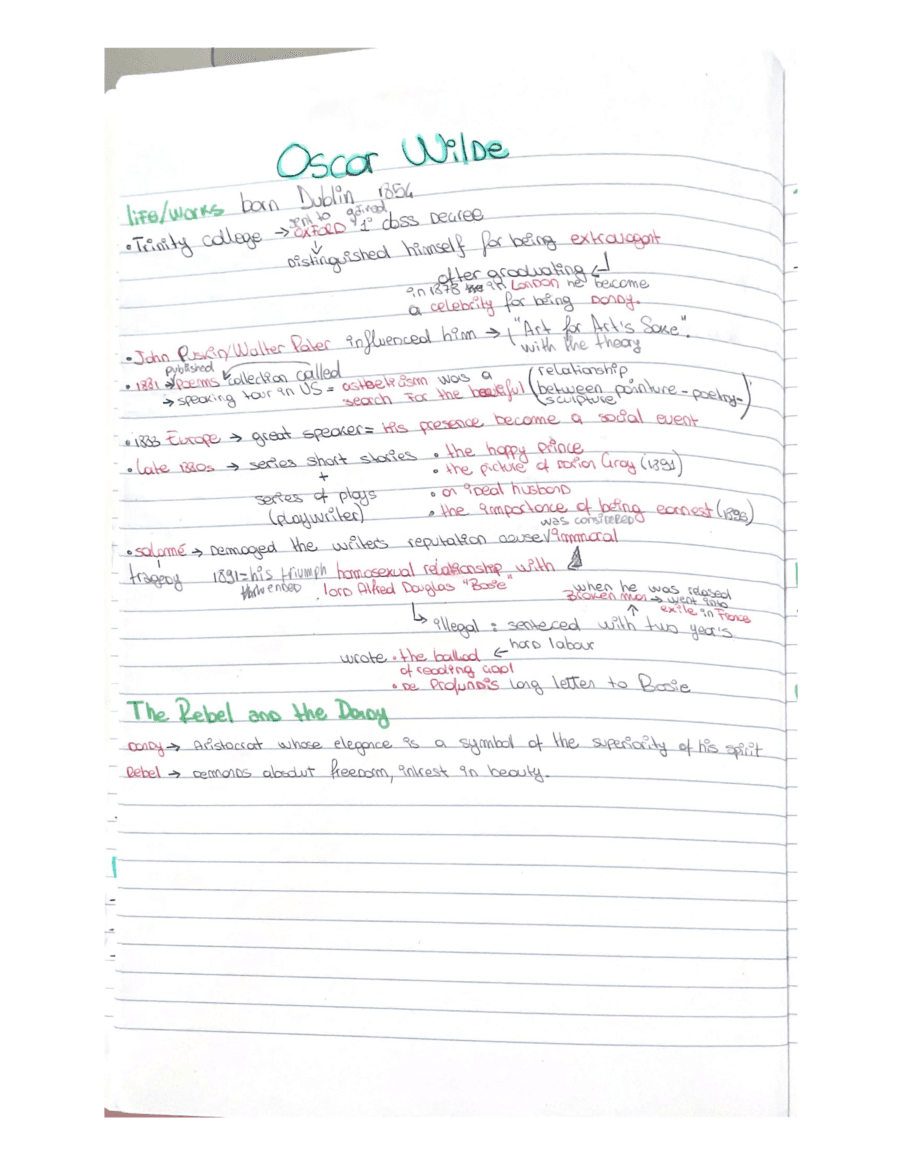 Oscar Wilde
life/works born Dublin 1854
• Trinity college → sent to OXFORD gained 1° class Degree
↓
Distinguished himself for being extravagant
after graduating ↲
in 1878 in London he become
a celebrity for being Dandy.
• John Ruskin/Walter Pater influenced him → "Art for Art's Sake".
with the theory
published
• 1881 → Poems collection called
→ speaking tour in US = astheticism was a (relationship
search for the beautiful between painture - poetry -
sculpture)
• 1883 Europe → great speaker = his presence become a social event
• Late 1880s → series short stories • the happy prince
+ • the picture of Dorian Gray (1891)
series of plays • an ideal husband
(playwriter) • the importance of being earnest (1895)
was considered
• Salomé → Demaged the writer's reputation cause immoral
tragedy 1891 = his triumph homosexual relationship with
lord Alfred Douglas "Bosie"
when he was relased
Broken man → went into
exile in France
↳ illegal : senteced with two year's
hard labour
wrote • the ballad ←
of reading gaol
• De Profundis long letter to Bosie
The Rebel and the Dandy
Dandy → Aristocrat whose elegance is a symbol of the superiority of his spirit
Rebel → Demands absolut freedom, intrest in beauty.